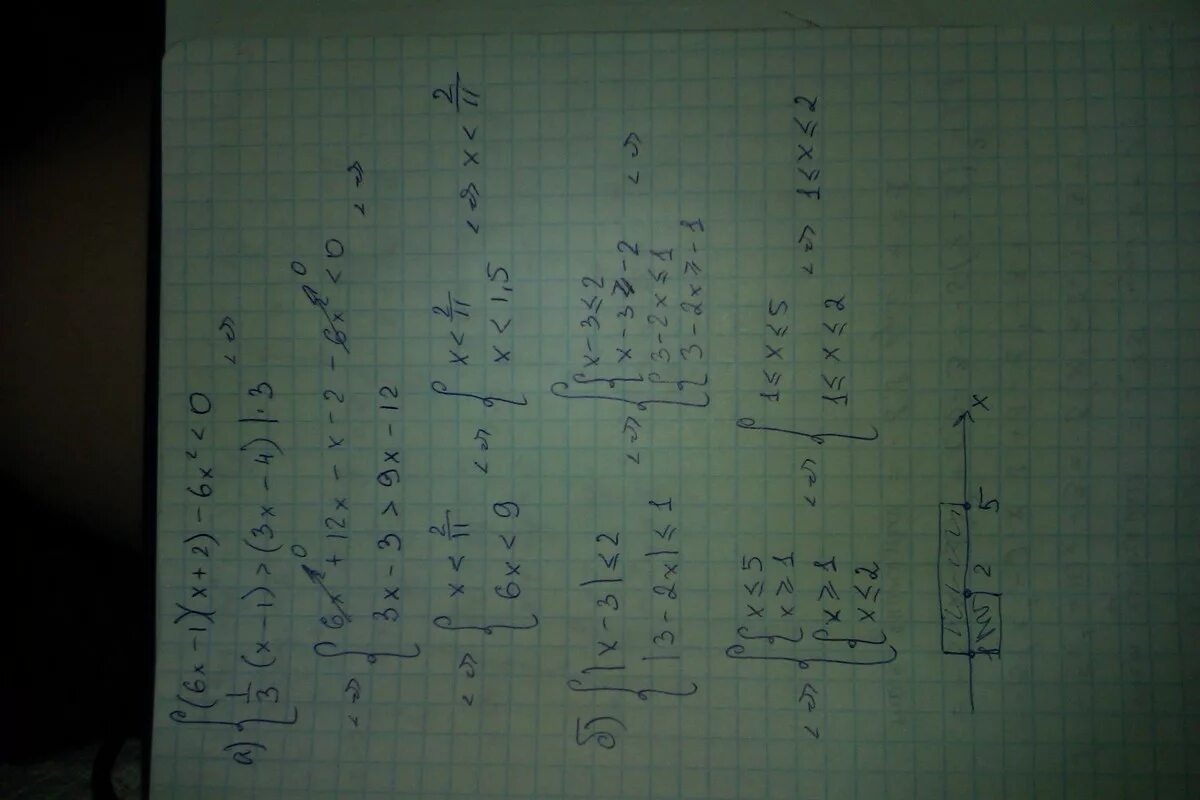 а) { (6x − 1)(x + 2) − 6x² < 0
{ 1/3 (x − 1) > (3x − 4) | · 3 <=>
<=> { 6x² 0 + 12x − x − 2 − 6x² 0 < 0
{ 3x − 3 > 9x − 12 <=>
<=> { x < 2/11
{ 6x < 9 <=> { x < 2/11
{ x < 1,5 <=> x < 2/11
б) { |x − 3| ≤ 2
{ |3 − 2x| ≤ 1 <=> { { x − 3 ≤ 2
{ x − 3 ≥ −2
{ 3 − 2x ≤ 1
{ 3 − 2x ≥ −1 <=>
<=> { { x ≤ 5
{ x ≥ 1
{ x ≥ 1
{ x ≤ 2 <=> { 1 ≤ x ≤ 5
{ 1 ≤ x ≤ 2 <=> 1 ≤ x ≤ 2
1 2 5 x